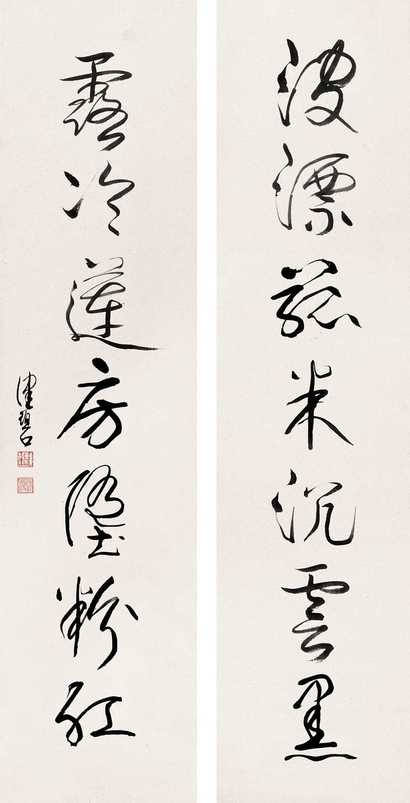 波漂菰米沉雲黑
露冷蓮房墜粉紅